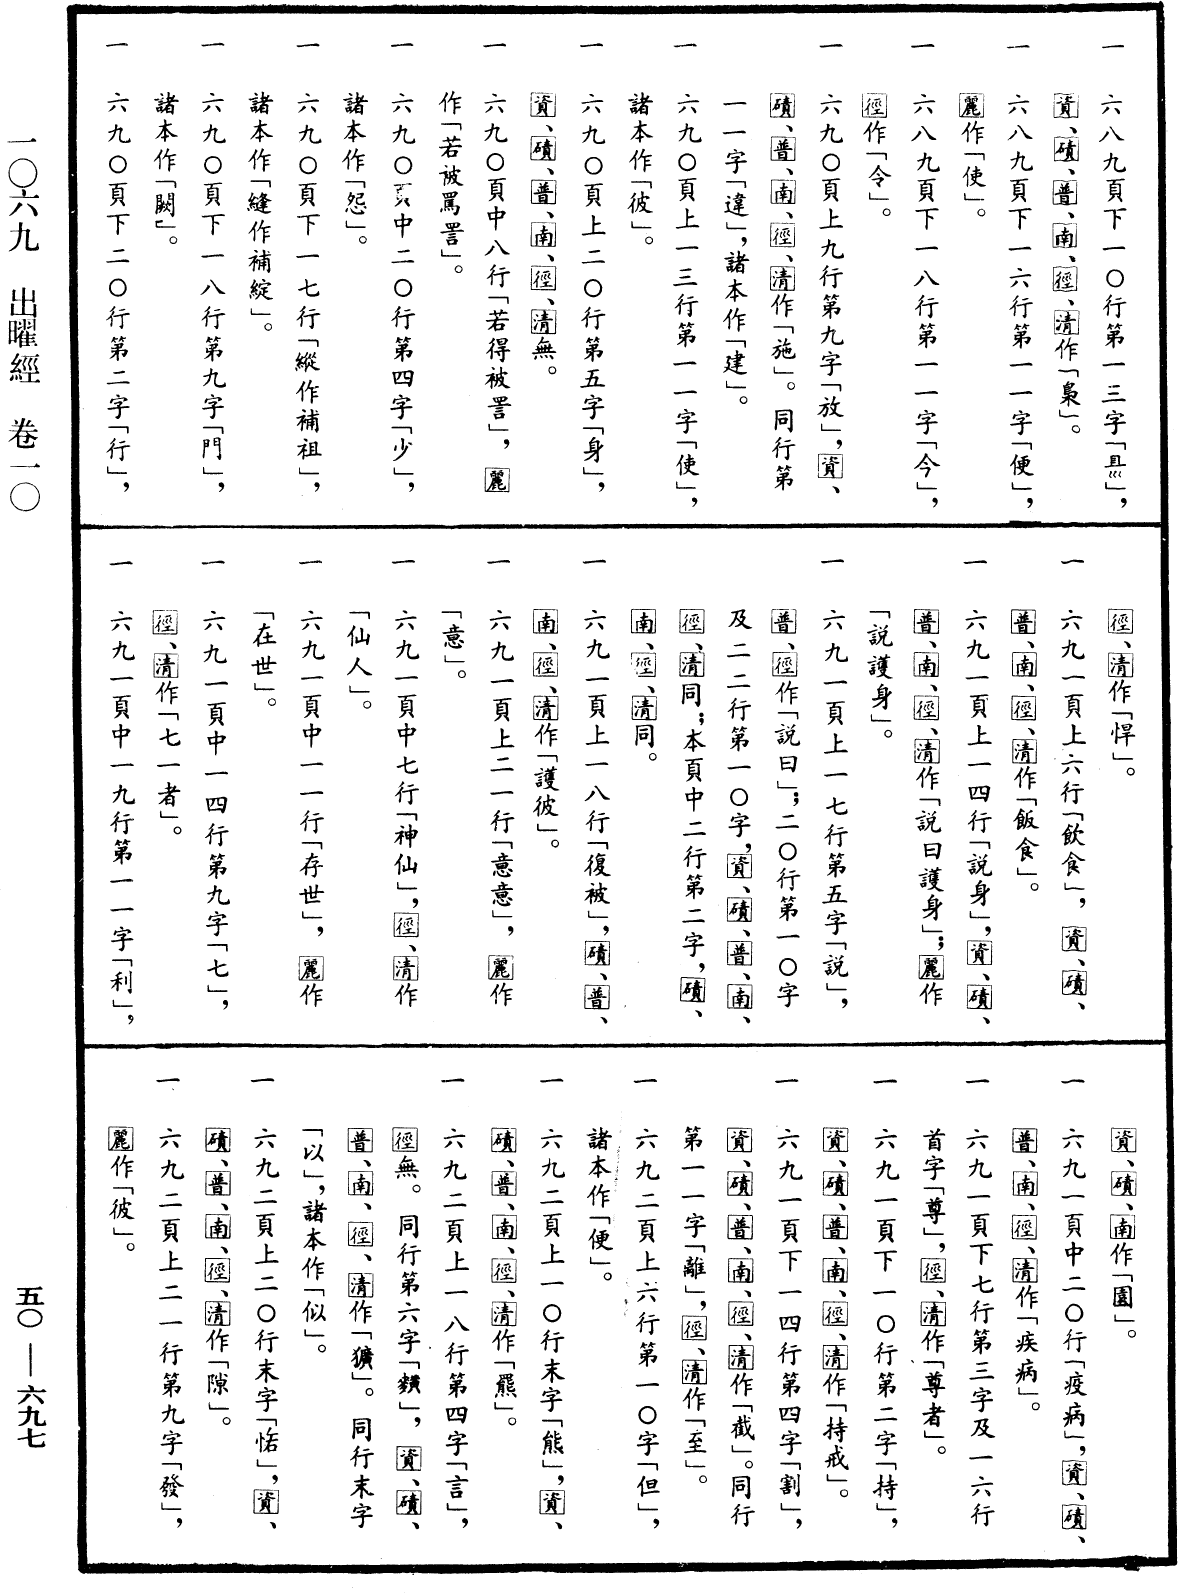 一〇六九　出曜經　卷一〇
一　六八九頁下一〇行第一三字「㬎」，
資、磧、普、南、徑、清作「梟」。
一　六八九頁下一六行第一一字「便」，
麗作「使」。
一　六八九頁下一八行第一一字「今」，
徑作「令」。
一　六九〇頁上九行第九字「放」，資、
磧、普、南、徑、清作「施」。同行第
一一字「違」，諸本作「建」。
一　六九〇頁上一三行第一一字「使」，
諸本作「彼」。
一　六九〇頁上二〇行第五字「身」，
資、磧、普、南、徑、清無。
一　六九〇頁中八行「若得被詈」，麗
作「若被罵詈」。
一　六九〇頁中二〇行第四字「少」，
諸本作「怨」。
一　六九〇頁下一七行「縱作補祖」，
諸本作「縫作補綻」。
一　六九〇頁下一八行第九字「門」，
諸本作「闕」。
一　六九〇頁下二〇行第二字「行」，
徑、清作「悍」。
一　六九一頁上六行「飲食」，資、磧、
普、南、徑、清作「飯食」。
一　六九一頁上一四行「説身」，資、磧、
普、南、徑、清作「説曰護身」；麗作
「説護身」。
一　六九一頁上一七行第五字「説」，
普、徑作「説曰」；二〇行第一〇字
及二二行第一〇字，資、磧、普、南、
徑、清同；本頁中二行第二字，磧、
南、徑、清同。
一　六九一頁上一八行「復被」，磧、普、
南、徑、清作「護彼」。
一　六九一頁上二一行「意意」，麗作
「意」。
一　六九一頁中七行「神仙」，徑、清作
「仙人」。
一　六九一頁中一一行「存世」，麗作
「在世」。
一　六九一頁中一四行第九字「七」，
徑、清作「七一者」。
一　六九一頁中一九行第一一字「利」，
資、磧、南作「園」。
一　六九一頁中二〇行「疫病」，資、磧、
普、南、徑、清作「疾病」。
一　六九一頁下七行第三字及一六行
首字「尊」，徑、清作「尊者」。
一　六九一頁下一〇行第二字「持」，
資、磧、普、南、徑、清作「持戒」。
一　六九一頁下一四行第四字「割」，
資、磧、普、南、徑、清作「截」。同行
第一一字「離」，徑、清作「至」。
一　六九二頁上六行第一〇字「但」，
諸本作「便」。
一　六九二頁上一〇行末字「熊」，資、
磧、普、南、徑、清作「羆」。
一　六九二頁上一八行第四字「言」，
徑無。同行第六字「䵃」，資、磧、
普、南、徑、清作「獷」。同行末字
「以」，諸本作「似」。
一　六九二頁上二〇行末字「㤩」，資、
磧、普、南、徑、清作「隙」。
一　六九二頁上二一行第九字「發」，
麗作「彼」。
五〇——六九七